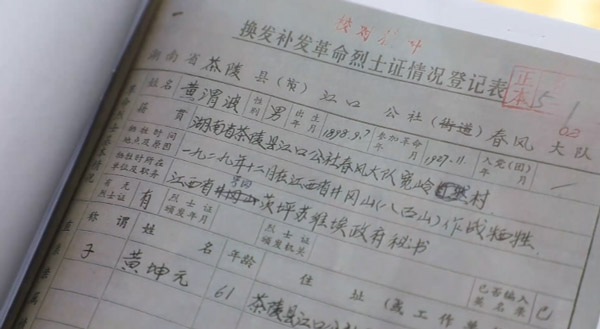 换发补发革命烈士证情况登记表
正本
湖南省茶陵县(市)江口公社(街道)春风大队
姓名 黄渭波 性别 男 出生年月 1898.9.7 参加革命年月 1927.11. 入党(团)年月
籍贯 湖南省茶陵县江口公社春风大队 村
牺牲时间地点及原因 一九二九年十二月在江西省井冈山(八面山)作战牺牲
牺牲时所在单位及职务 江西省 茨坪苏维埃政府秘书
有无烈士证 有 烈士证颁发年月 烈士证颁发机关
称谓 姓名 年龄 住址(或工作单
已否编入英名录 已
子 黄坤元 61 茶陵县江口公社